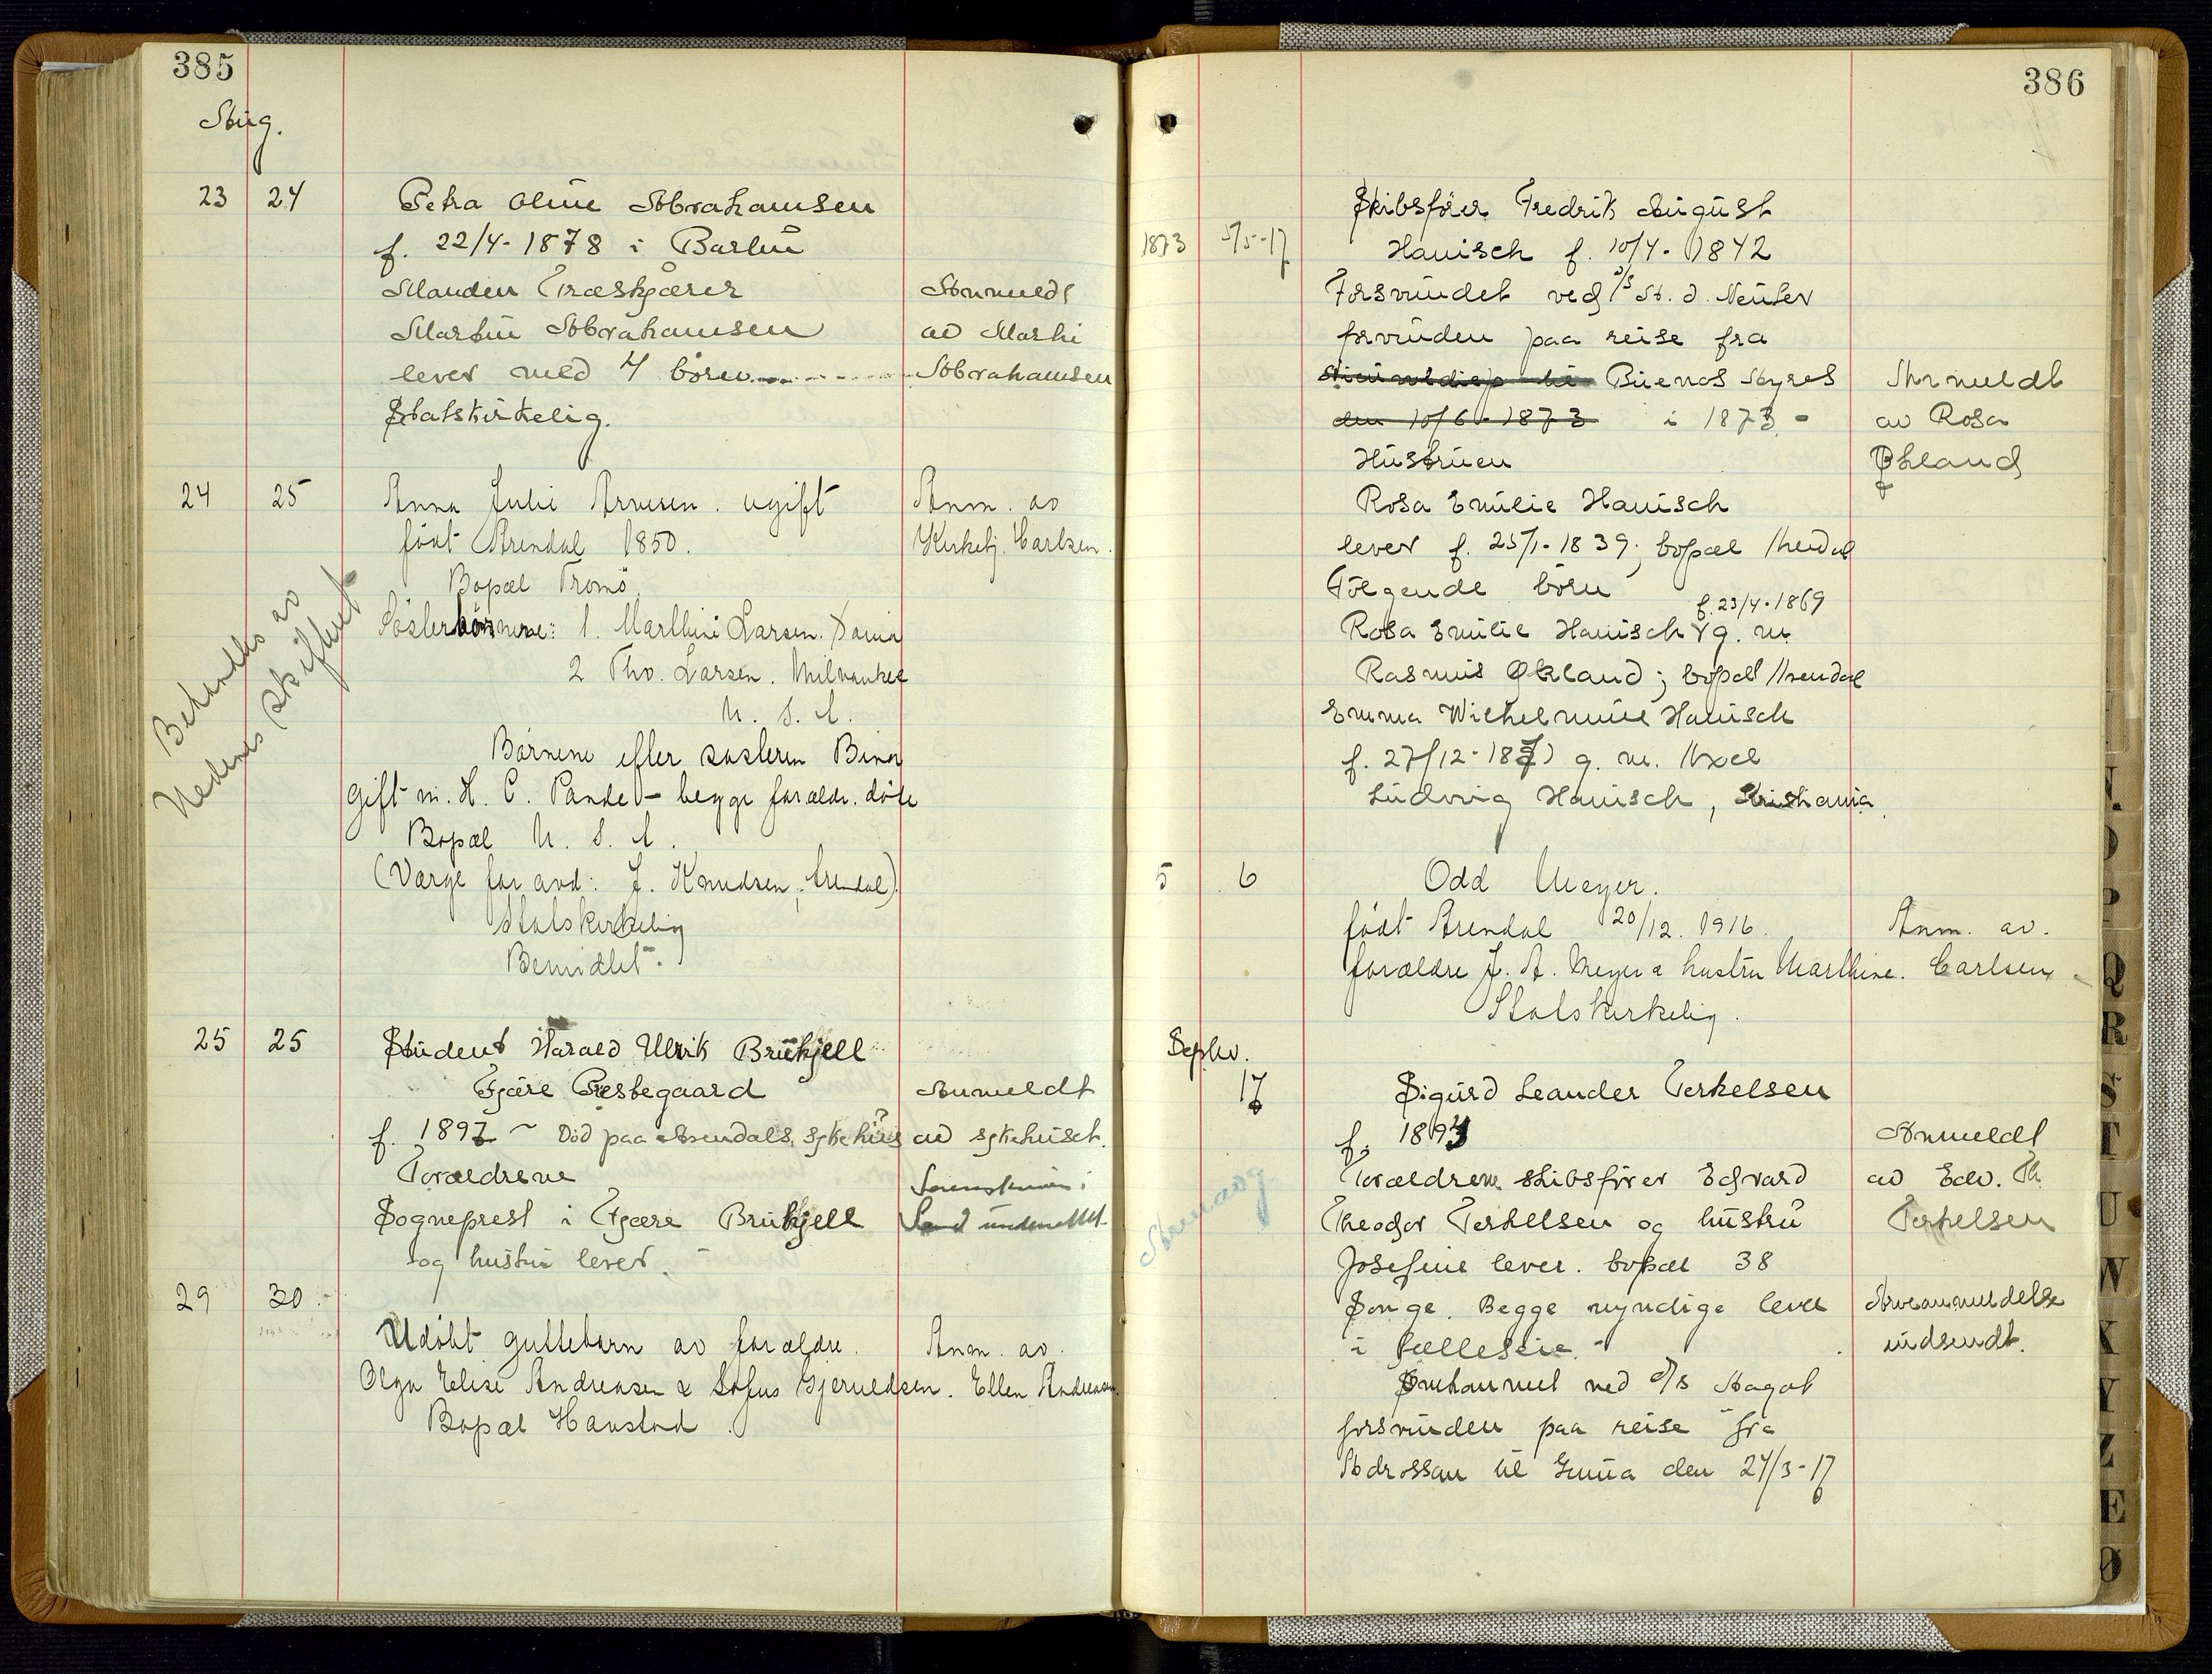 385
Aug.
23 24 Petra Oline Abrahamsen
f. 22/4-1878 i Barbu
Manden Træskjærer Anmeldt
Martin Abrahamsen av Martin
lever med 4 børn Abrahamsen
Statskirkelig.
24 25 Anna Julie Arnesen. ugift Anm. av
født Arendal 1850. Kirketj. Carlsen.
Bopæl Tromø
Søsterbørnene: 1. Marthine Larsen.
2 Thv. Larsen. Milvaukee
U. S. A.
Børnene efter søsteren Bina
Gift m. H. C. Pande - begge forældr. døde
Bopæl U. S. A.
(Værge for avd: J. Knudsen, Arendal)
Statskirkelig
Bemidlet.
Behandles av
Nedenes skifteret
25 25 Student Harald Ulrik Brukjell
Fjære Prestegaard Anmeldt
f. 1897 - Død paa Arendals sykehus av sykehuset.
Forældrene
Sogneprest i Fjære Brukjell
og hustru lever. -
29 30
Udøbt guttebarn av forældre. Anm. av.
Olga Elise Andreasen & Sofus Gjeruldsen. Ellen Andreasen.
Bopæl Havstad.
386
Skibsfører Fredrik August
1873 5/5-17 Hanisch f. 10/4-1842
Forsvundet ved
forvunden paa reise fra
Buenos Ayres Anmeldt
den 10/6-1873 i 1873 - av Rosa
Hustruen Økland
Rosa Emilie Hanisch
lever f. 25/1-1839; bopæl Arendal
Følgende børn
f. 23/4-1869
Rosa Emilie Hanisch g. m.
Rasmus Økland; bopæl Arendal
Emma Wilhelmine Hanisch
f. 27/12-187 g. m. Axel
Ludvig Hanisch, Kristiania.
5 6 Odd Meyer.
født Arendal 20/12. 1916. Anm. av.
forældre J. A. Meyer & hustru Marthine. Carlsen
Statskirkelig.
Septbr.
17 Sigurd Leander Terkelsen
f. 1893 Anmeldt
Forældrene skibsfører Edvard av Edv. Th.
Theodor Terkelsen og hustru Terkelsen
Josefine lever. bopæl 38
Songe. Begge myndige lever Arveanmeldelse
i fælleseie. - indsendt.
Omkommet ved d/s Hagal
forsvunden paa reise fra
Ardrossan til Genua den 24/3-17
N.
P
Q
R
S
T
U
W
X
Y
Z
Æ
Ø